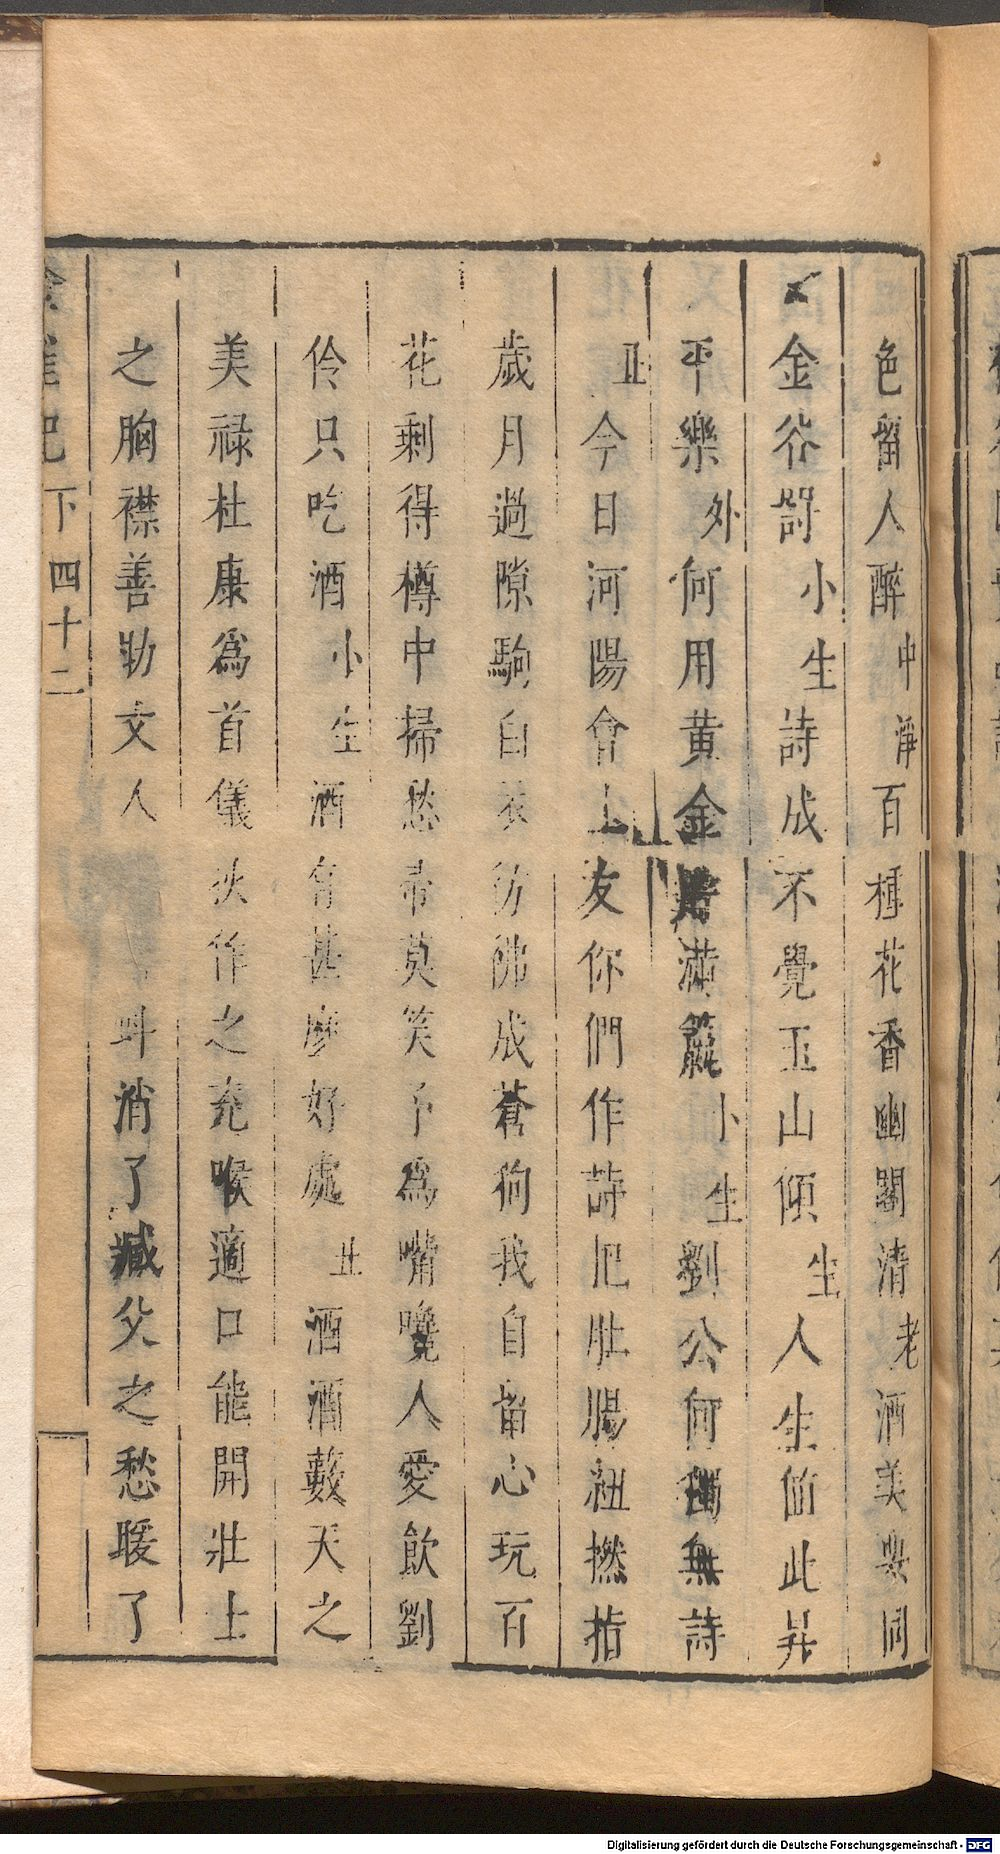 色留人醉中淨百種花香幽闃清老酒美與同
金谷罰小生詩成不覺玉山傾生人生值此昇
平樂外何用黃金滿籯小生劉公何獨無詩
丑今日河陽會上友你們作詩把肚腸紐撚指
歲月過隙駒白衣彷彿成蒼狗我自留心玩百
花剩得樽中掃愁帚莫笑予為嘴嚵人愛飲劉
伶只吃酒小生酒有甚麽好處丑酒酒藪天之
美祿杜康爲首儀狄作之充喉適口能開壯士
之胸襟善助文人消了臧父之愁暖了
雀記 下 四十二
Digitalisierung gefördert durch die Deutsche Forschungsgemeinschaft - DFG